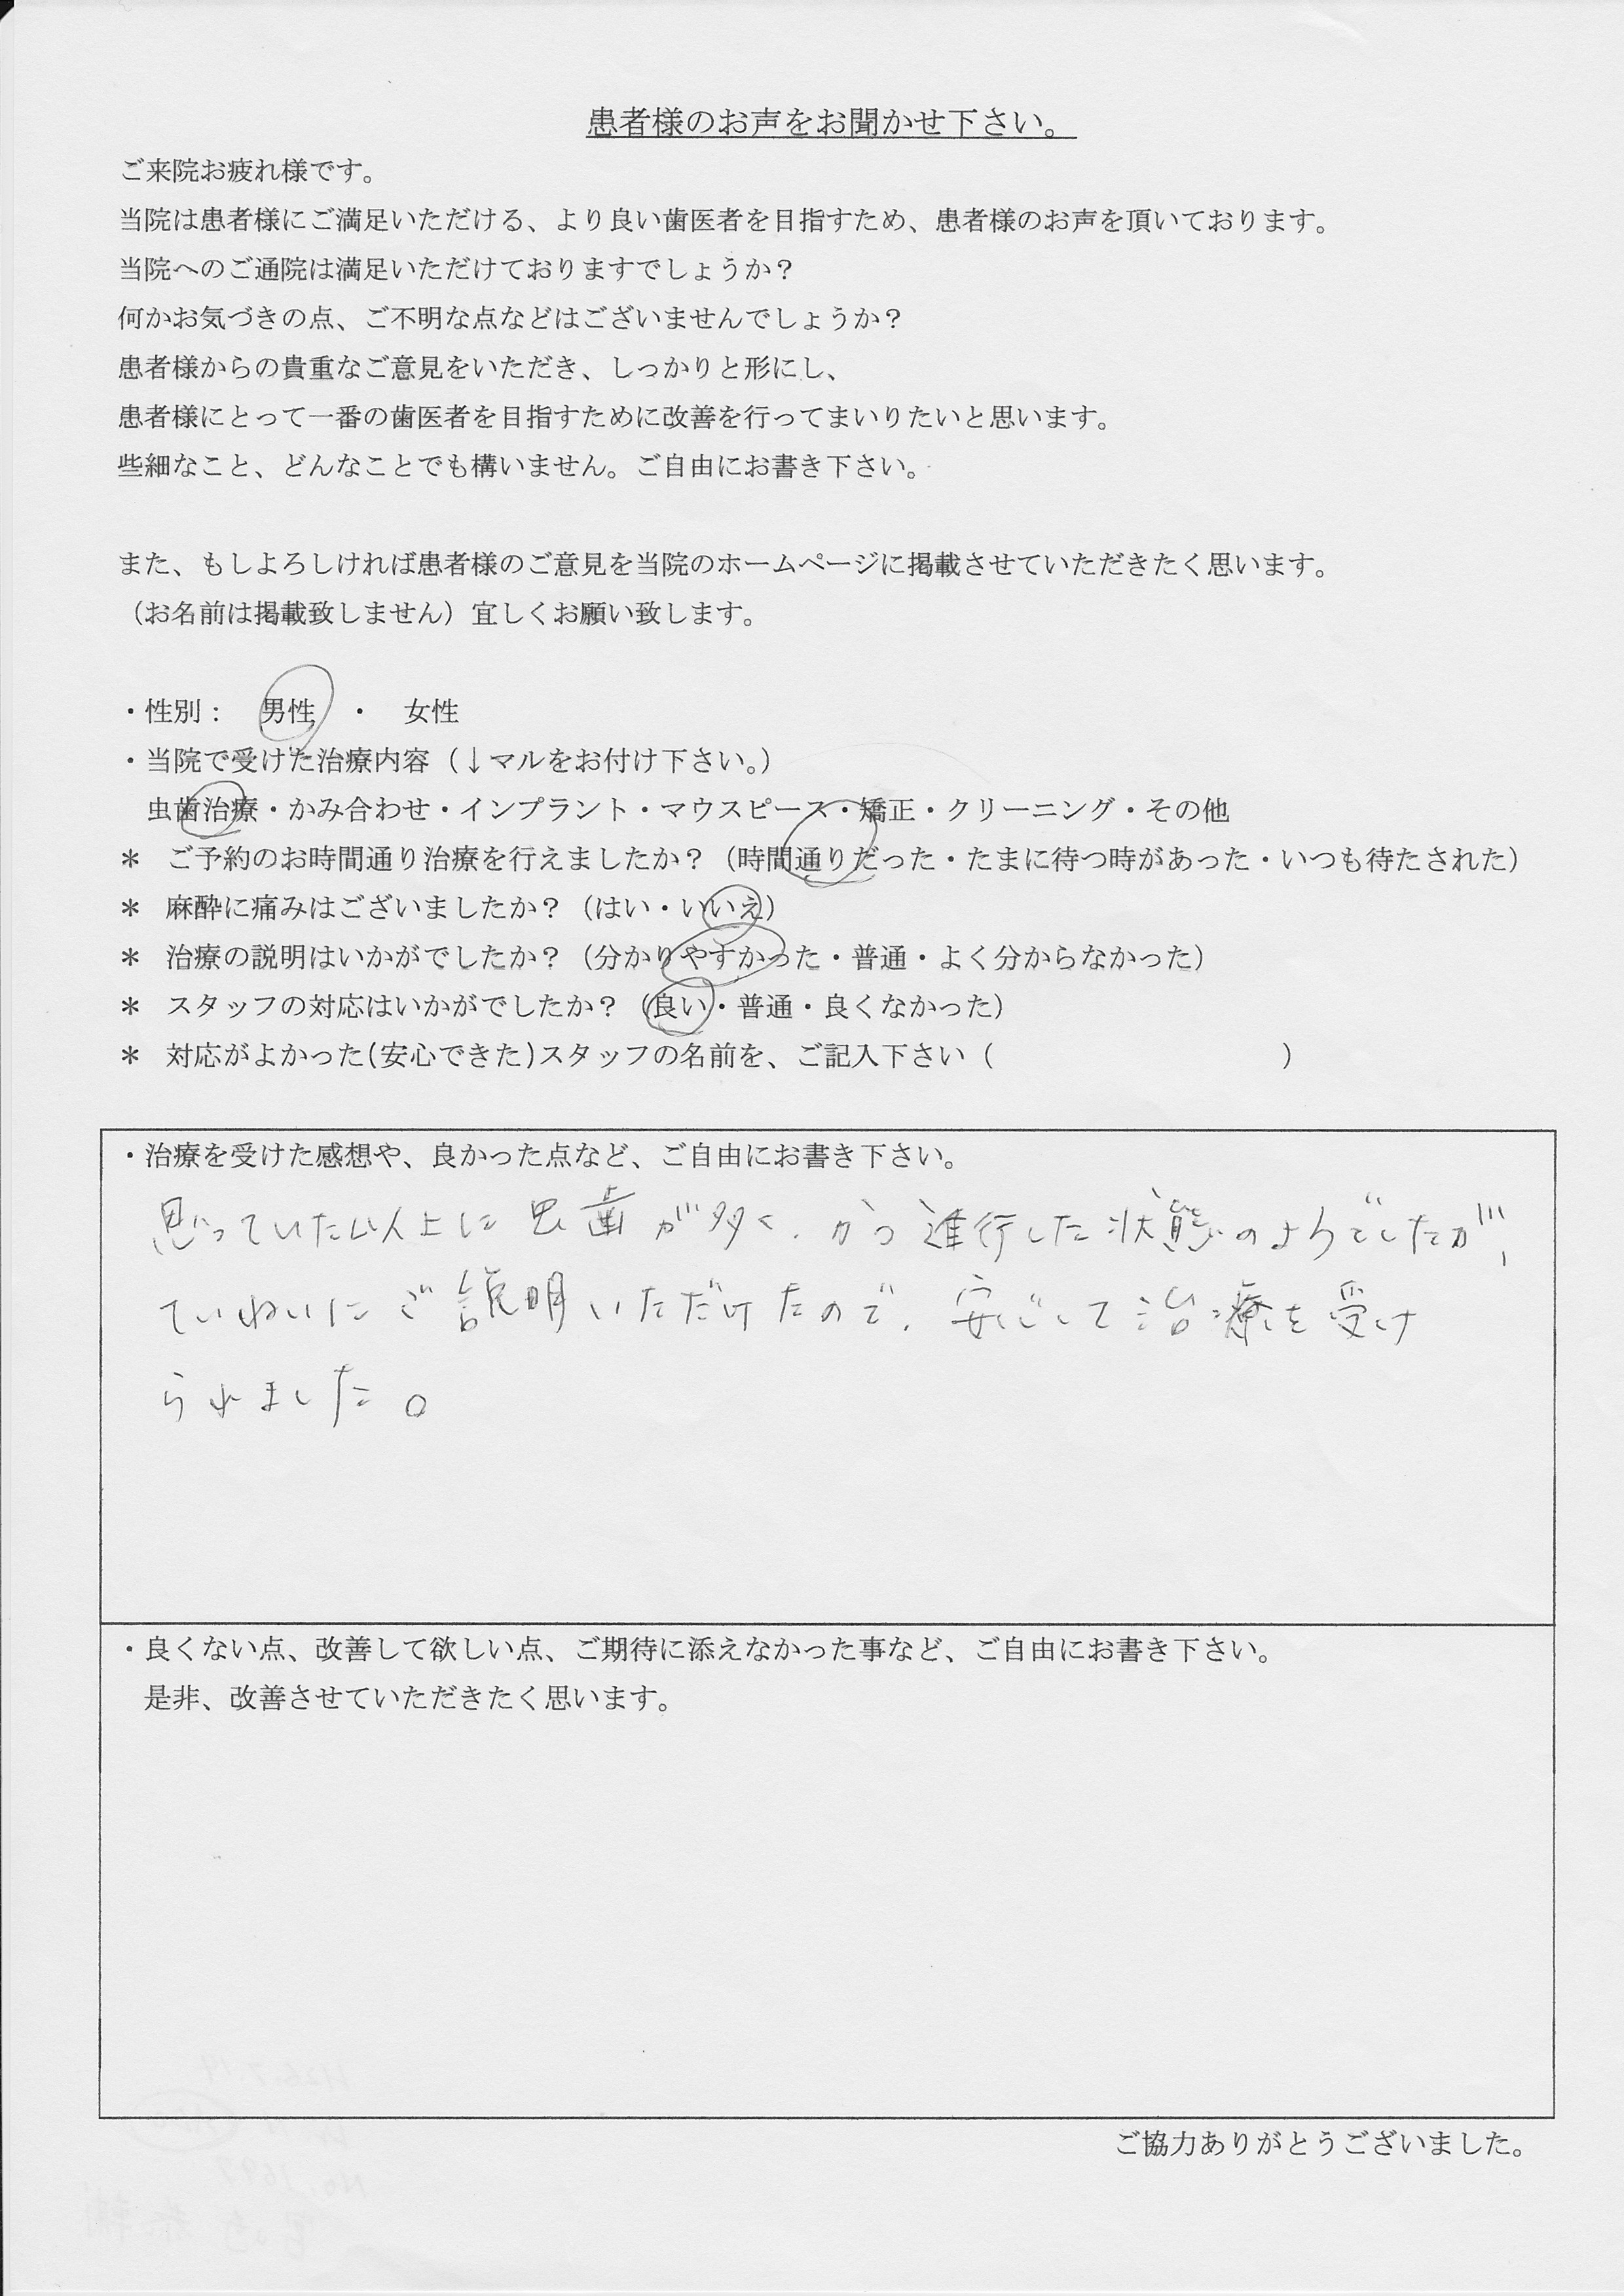 患者様のお声をお聞かせ下さい。
ご来院お疲れ様です。
当院は患者様にご満足いただける、より良い歯医者を目指すため、患者様のお声を頂いております。
当院へのご通院は満足いただけておりますでしょうか？
何かお気づきの点、ご不明な点などはございませんでしょうか？
患者様からの貴重なご意見をいただき、しっかりと形にし、
患者様にとって一番の歯医者を目指すために改善を行ってまいりたいと思います。
些細なこと、どんなことでも構いません。ご自由にお書き下さい。
また、もしよろしければ患者様のご意見を当院のホームページに掲載させていただきたく思います。
（お名前は掲載致しません）宜しくお願い致します。
・性別： 男性 ・ 女性
・当院で受けた治療内容（↓マルをお付け下さい。）
虫歯治療・かみ合わせ・インプラント・マウスピース・矯正・クリーニング・その他
＊ ご予約のお時間通り治療を行えましたか？（時間通りだった・たまに待つ時があった・いつも待たされた）
＊ 麻酔に痛みはございましたか？（はい・いいえ）
＊ 治療の説明はいかがでしたか？（分かりやすかった・普通・よく分からなかった）
＊ スタッフの対応はいかがでしたか？（良い・普通・良くなかった）
＊ 対応がよかった(安心できた)スタッフの名前を、ご記入下さい（ ）
・治療を受けた感想や、良かった点など、ご自由にお書き下さい。
思っていた以上に虫歯が多く、かつ進行した状態のようでしたが、
ていねいにご説明いただけたので、安心して治療を受け
られました。
・良くない点、改善して欲しい点、ご期待に添えなかった事など、ご自由にお書き下さい。
是非、改善させていただきたく思います。
ご協力ありがとうございました。